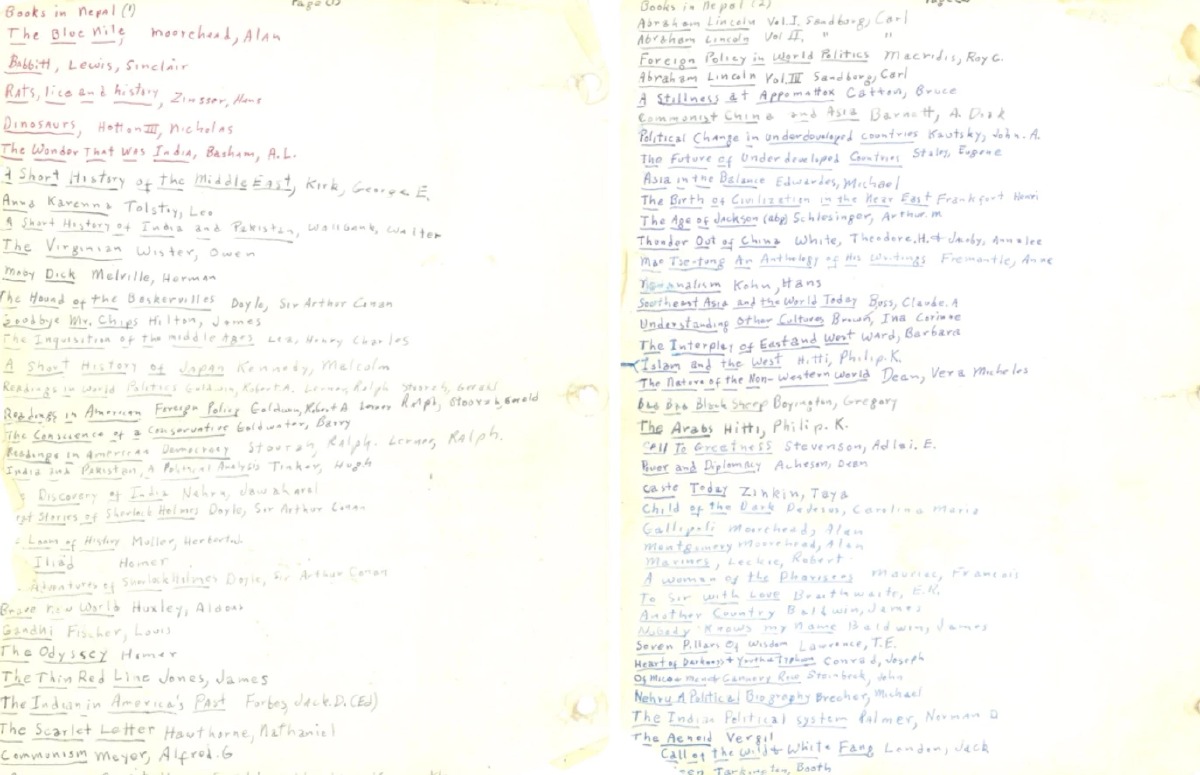 Books in Nepal (1)
Page (1)
The Blue Nile, Moorehead, Alan
Babbitt, Lewis, Sinclair
Rats, lice and history, Zinsser, Hans
Dinosaurs, Hotton III, Nicholas
The Wonder That was India, Basham, A.L.
History of the Middle East, Kirk, George E.
Anna Karenina Tolstoy, Leo
A Short History of India and Pakistan, Wallbank, Walter
The Virginian Wister, Owen
Moby Dick Melville, Herman
The Hound of the Baskervilles Doyle, Sir Arthur Conan
Goodbye Mr. Chips Hilton, James
Inquisition of the middle Ages Lea, Henry Charles
History of Japan Kennedy, Malcolm
Readings in American Foreign Policy Goldwin, Robert A Lerner Ralph, Stourzh, Gerald
The Conscience of a Conservative Goldwater, Barry
in American Democracy Stourzh, Ralph. Lerner, Ralph.
India and Pakistan, A Political Analysis Tinker, Hugh
Discovery of India Nehru, Jawaharal
Stories of Sherlock Holmes Doyle, Sir Arthur Conan
Loom of History Muller, Herbert
Iliad Homer
Adventures of Sherlock Holmes Doyle, Sir Arthur Conan
New World Huxley, Aldous
Louis
Homer
Jones, James
in America's Past Forbes, Jack. D. (Ed)
The Scarlet Letter Hawthorne, Nathaniel
Communism Meyer, Alfred. G
Books in Nepal (2)
Abraham Lincoln Vol. I. Sandburg, Carl
Abraham Lincoln Vol II. " "
Foreign Policy in World Politics Macridis, Roy G.
Abraham Lincoln Vol. III Sandburg, Carl
A Stillness at Appomattox Catton, Bruce
Communist China and Asia Barnett, A. Doak
Political Change in underdeveloped countries Kautsky, John. A.
The Future of Underdeveloped Countries Staley, Eugene
Asia in the Balance Edwardes, Michael
The Birth of Civilization in the Near East Frankfort Henri
The Age of Jackson (abg) Schlesinger, Arthur. M
Thunder Out of China White, Theodore. H. & Jacoby, Annalee
Mao Tse-tung An Anthology of His Writings Fremantle, Anne
Nationalism Kohn, Hans
Southeast Asia and the World Today Buss, Claude. A
Understanding Other Cultures Brown, Ina Corinne
The Interplay of East and West Ward, Barbara
Islam and the West Hitti, Philip. K.
The Nature of the Non-Western World Dean, Vera Micheles
Baa Baa Black Sheep Boyington, Gregory
The Arabs Hitti, Philip. K.
Call To Greatness Stevenson, Adlai. E.
Power and Diplomacy Acheson, Dean
Caste Today Zinkin, Taya
Child of the Dark Dedesus, Carolina Maria
Gallipoli Moorehead, Alan
Montgomery Moorehead, Alan
Marines, Leckie, Robert
A Woman of the Pharisees Mauriac, Francois
To Sir with Love Braithwaite, E.R.
Another Country Baldwin, James
Nobody Knows my Name Baldwin, James
Seven Pillars of Wisdom Lawrence, T.E.
Heart of Darkness + Youth + Typhoon Conrad, Joseph
Of Mice + Men + Cannery Row Steinbeck, John
Nehru A Political Biography Brecher, Michael
The Indian Political system Palmer, Norman D
The Aeneid Vergil
Call of the Wild & White Fang London, Jack
Tarkington, Booth